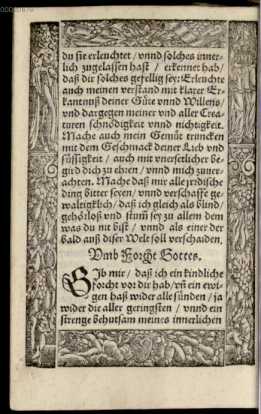 du sie erleuchtet / vnnd solches inner-
lich zugelassen hast / erkennet hab /
daß dir solches gefellig sey: Erleuchte
auch meinen verstand mit klarer Er-
kantnuß deiner Güte vnnd Willens /
vnd dargegen meiner vnd aller Crea-
turen schnödigkeit vnnd nichtigkeit.
Mache auch mein Gemüt truncken
mit dem Geschmack deiner Lieb vnd
süssigkeit / auch mit vnersetlicher be-
gird dich zu ehren / vnnd mich zuuer-
achten. Mache daß mir alle jrdische
ding bitter seyen / vnnd verschaffe ge-
waltigklich / daß ich gleich als blind /
gehörloß vnd stum̃ sey zu allem dem
was du nit bist / vnnd als einer der
bald auß diser Welt soll verschaiden.
Vmb Forcht Gottes.
Gib mir / daß ich ein kindliche
Forcht vor dir hab / vñ ein ewi-
gen haß wider alle sünden / ja
wider die aller geringsten / vnnd ein
strenge behutsam meines innerlichen